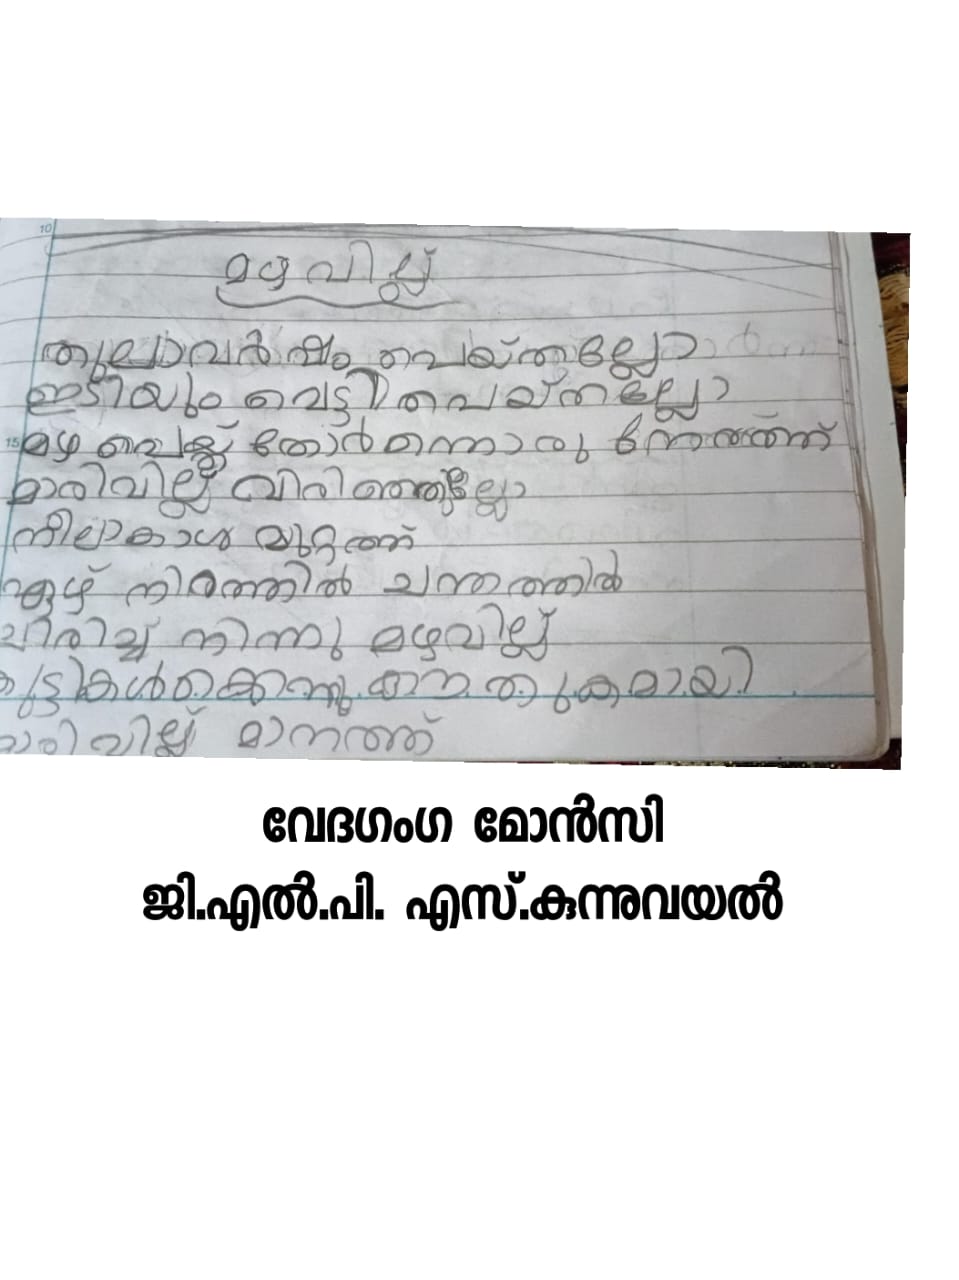 മഴവില്ല്
തുലാവർഷം പെയ്തല്ലോ
ഇടിയും വെട്ടി പെയ്തല്ലോ
മഴ പെയ്ത് തോർന്നൊരു നേരത്ത്
മാരിവില്ല് വിരിഞ്ഞല്ലോ
നീലാകാശ മുറ്റത്ത്
ഏഴ് നിരത്തിൽ ചന്തത്തിൽ
ചിരിച്ച് നിന്നു മഴവില്ല്
കുട്ടികൾക്കെന്നു കൗതുകമായി
മാരിവില്ല് മാനത്ത്
വേദഗംഗ മോൻസി
ജി.എൽ.പി. എസ്.കുന്നുവയൽ